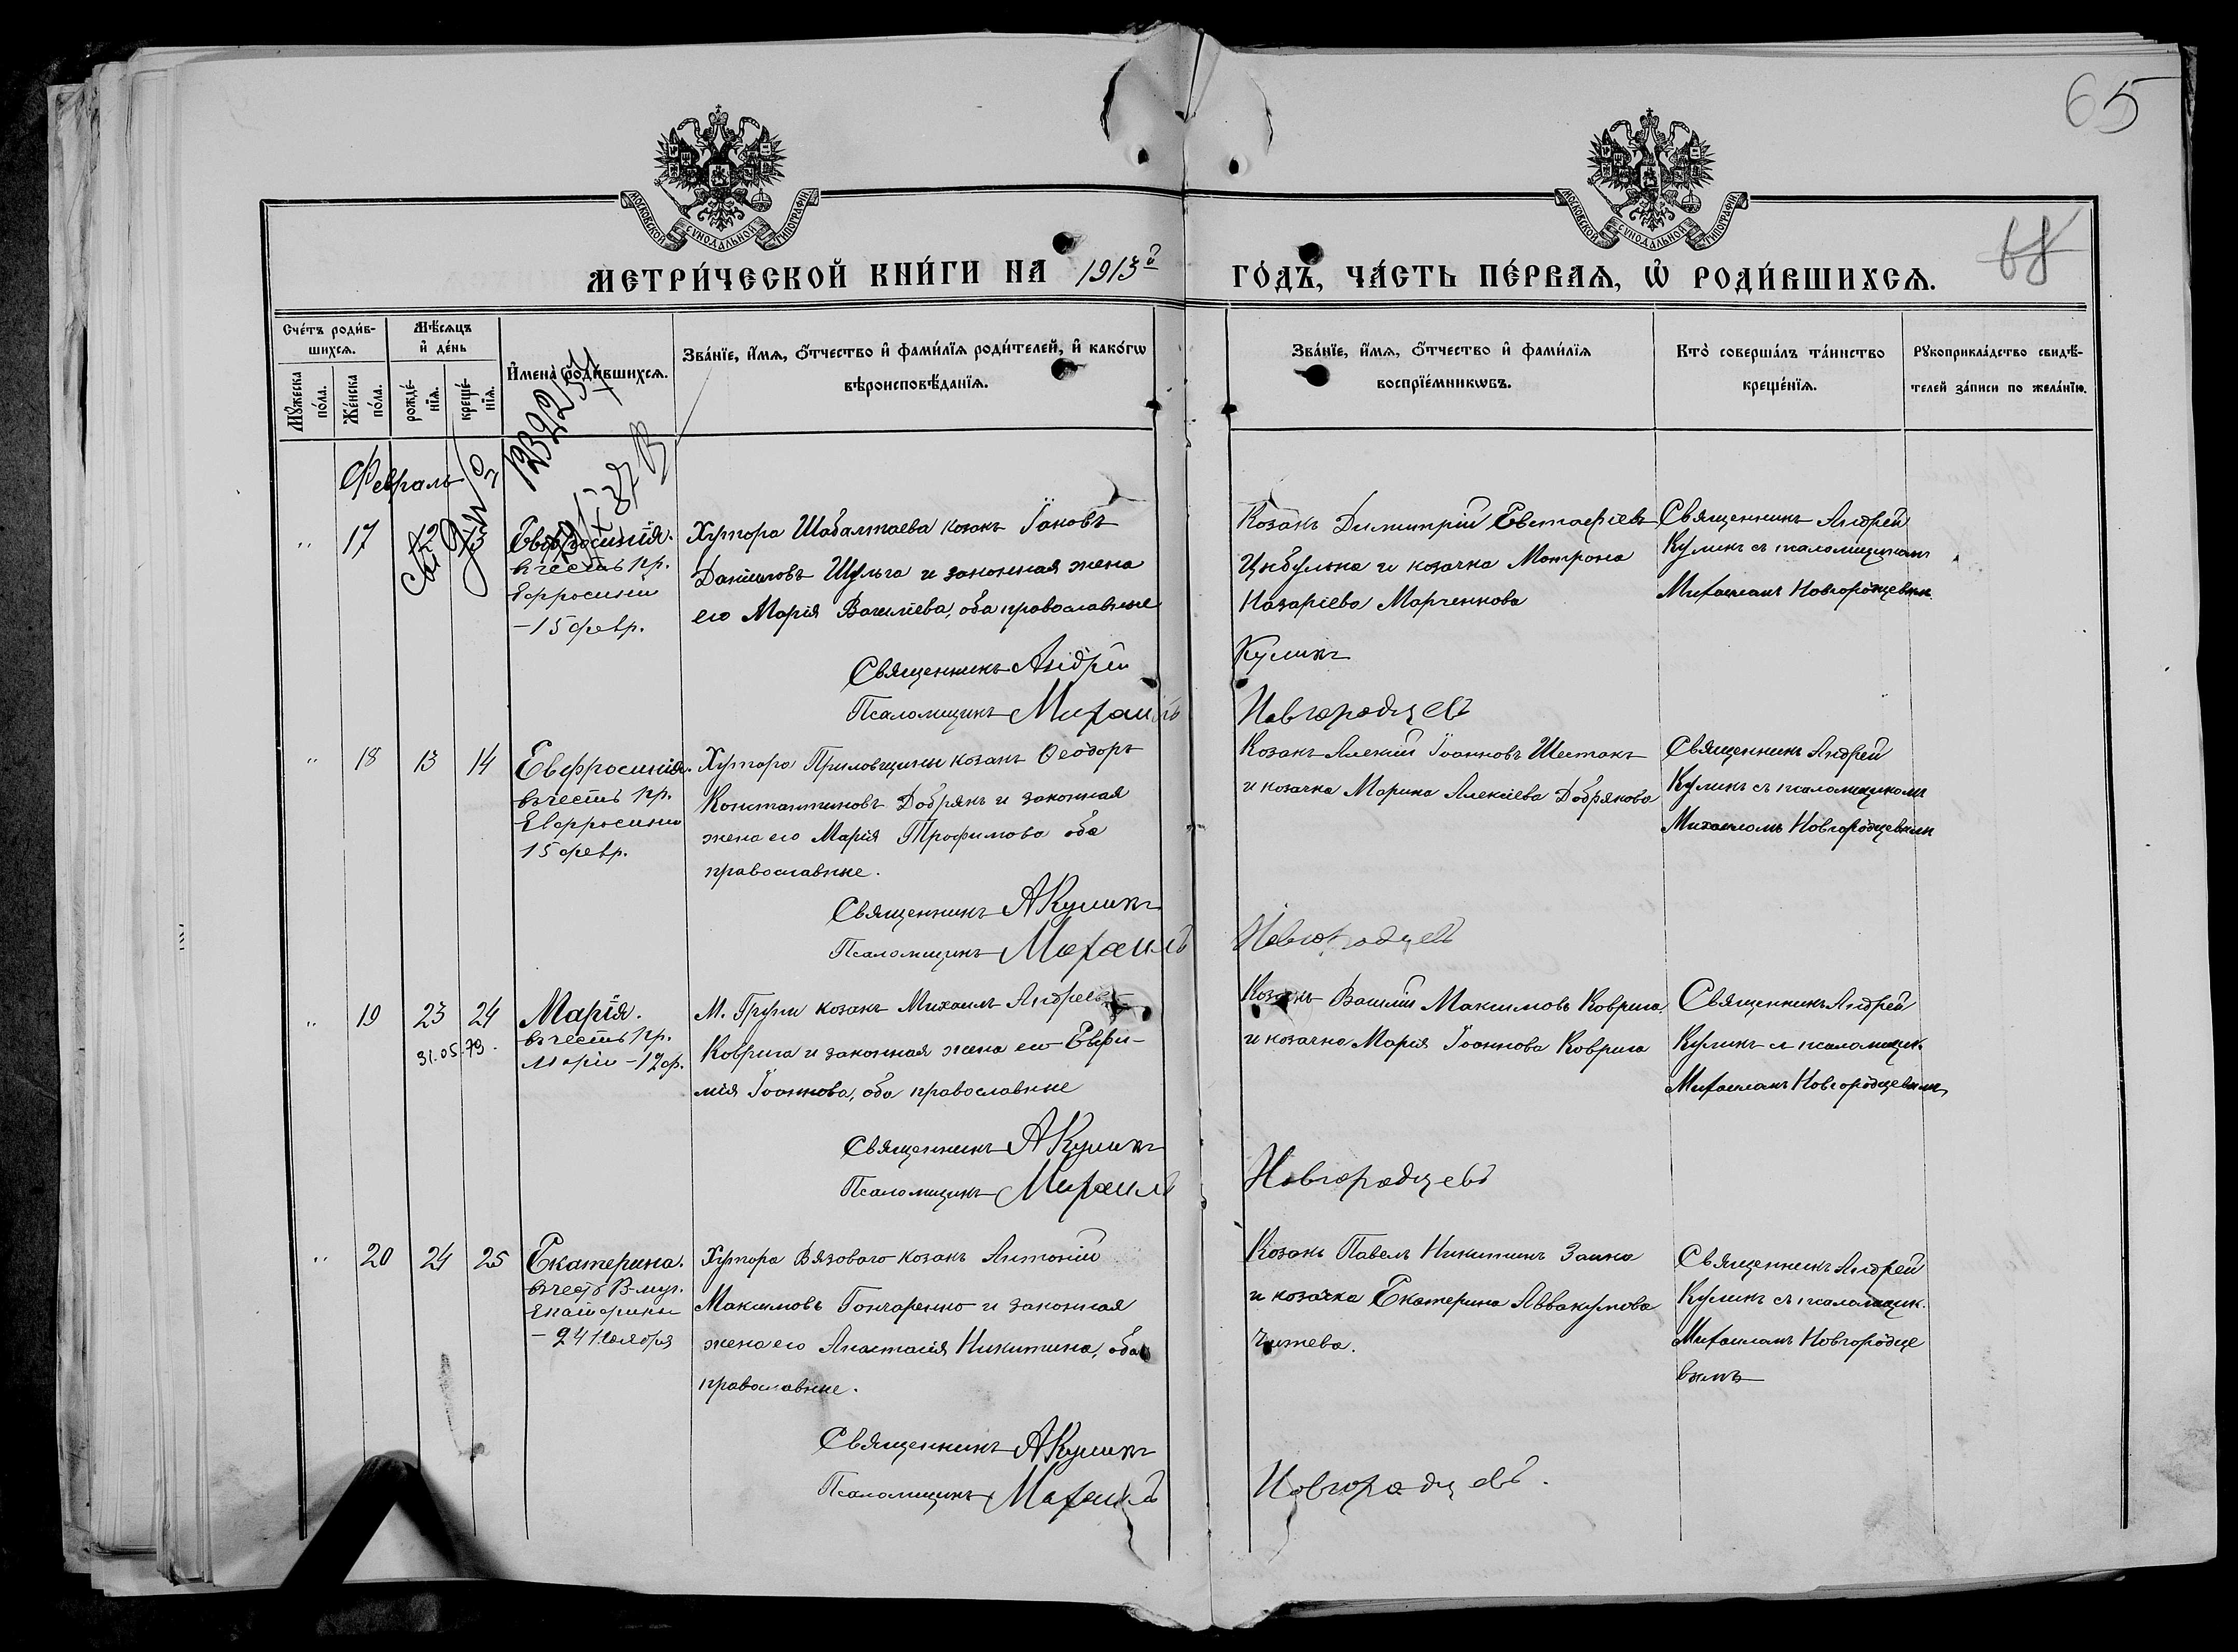 65
68
МОСКОВСКОЙ СѴНОДАЛЬНОЙ ТИПОГРАФІИ
МОСКОВСКОЙ СѴНОДАЛЬНОЙ ТИПОГРАФІИ
МЕТРИ́ЧЕСКОЙ КНИ́ГИ НА 1913й ГО́ДЪ, ЧА́СТЬ ПЕ́РВАѦ, Ѡ҆ РОДИ́ВШИХСѦ.
Сче́тъ роди́в-
шихсѧ.
Мѣ́сѧцъ
и҆ де́нь
Мꙋ́жеска
по́ла.
Же́нска
по́ла.
рожде́-
нїѧ.
креще́-
нїѧ.
И҆мена̀ роди́вшихсѧ.
Зва́нїе, и҆́мѧ, ѻ҆́тчество и҆ фами́лїѧ роди́телей, и҆ како́гѡ
вѣроисповѣ́данїѧ.
Зва́нїе, и҆́мѧ, ѻ҆́тчество и҆ фами́лїѧ
воспрїе́мникѡвъ.
Кто̀ соверша́лъ та́инство
креще́нїѧ.
Рꙋкоприкла́дство свидѣ́-
телей за́писи по жела́нїю.
Февраль
" 17 12 13 Евфросинія.
въ честь пр.
Евфросиніи
– 15 февр.
Хутора Шабалтаева козакъ Іаковъ
Даніиловъ Шульга и законная жена
его Марія Василіева, оба православные
Священникъ Андрей Куликъ
Псаломщикъ Михаилъ Новгородцевъ
Козакъ Димитрій Евстафіевъ
Цибулька и козачка Матрона
Назаріева Марченкова
Священникъ Андрей
Куликъ съ псаломщикомъ
Михаиломъ Новгородцевымъ
" 18 13 14 Евфросинія.
въ честь пр.
Евфросиніи
15 февр.
Хутора Приловщины козакъ Ѳеодоръ
Константиновъ Добрякъ и законная
жена его Марія Трофимова оба
православные.
Священникъ АКуликъ
Псаломщикъ Михаилъ Новгородцевъ
Козакъ Алексій Іоанновъ Шестакъ
и козачка Марина Алексіева Добрякова
Священникъ Андрей
Куликъ съ псаломщикомъ
Михаиломъ Новгородцевымъ
" 19 23 24 Марія.
31.05.79.
въ честь пр.
Маріи – 12 ф.
М. Груни козакъ Михаилъ Андреевъ
Коврига и законная жена его Евфи-
мія Іоаннова, оба православные
Священникъ АКуликъ
Псаломщикъ Михаилъ Новгородцевъ
Козакъ Василій Максимовъ Коврига
и козачка Марія Іоаннова Коврига
Священникъ Андрей
Куликъ съ псаломщик.
Михаиломъ Новгородцевымъ
" 20 24 25 Екатерина.
въ честь В-муч.
Екатерины
– 24 Ноября
Хутора Вязоваго козакъ Антоній
Максимовъ Гончаренко и законная
жена его Анастасія Никитина, оба
православные.
Священникъ АКуликъ
Псаломщикъ Михаилъ Новгородцевъ.
Козакъ Павелъ Никитинъ Заика
и козачка Екатерина Аввакумова
Чижева.
Священникъ Андрей
Куликъ съ псаломщик.
Михаиломъ Новгородце
вымъ